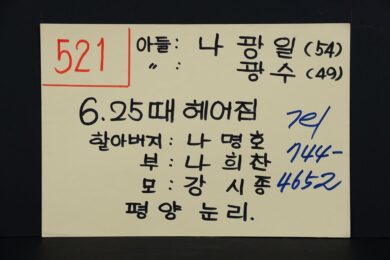 521
아들: 나 광일 (54)
〃 : 광수 (49)
6.25때 헤어짐
할아버지: 나 명호
부: 나 희찬
모: 강 시종
평양 눈리.
Tel
744-
4652